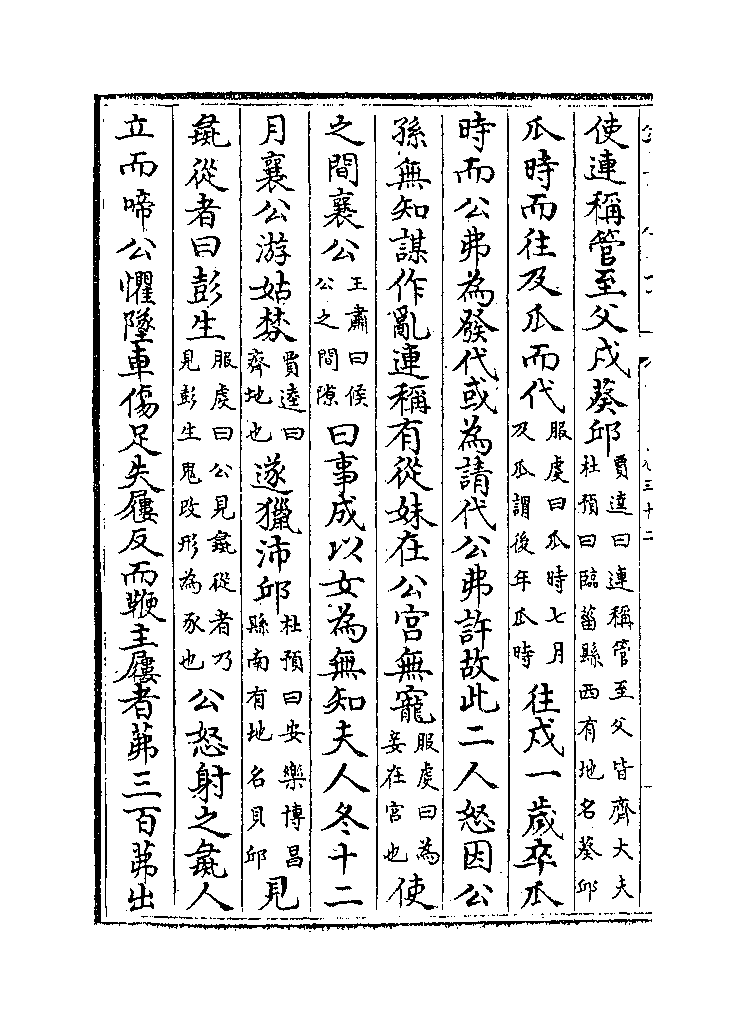 使連稱管至父戍葵邱賈逵曰連稱管至父皆齊大夫杜預曰臨菑縣西有地名葵邱
瓜時而往及瓜而代服虔曰瓜時七月及瓜謂後年瓜時往戍一歲卒瓜
時而公弗為發代或為請代公弗許故此二人怒因公
孫無知謀作亂連稱有從妹在公宮無寵服虔曰為妾在宮也使
之間襄公王肅曰候公之間隙曰事成以女為無知夫人冬十二
月襄公游姑棼賈逵曰齊地也遂獵沛邱杜預曰安樂博昌縣南有地名貝邱見
彘從者曰彭生服虔曰公見彘從者乃見彭生鬼改形為豕也公怒射之彘人
立而啼公懼墜車傷足失屨反而鞭主屨者茀三百茀出